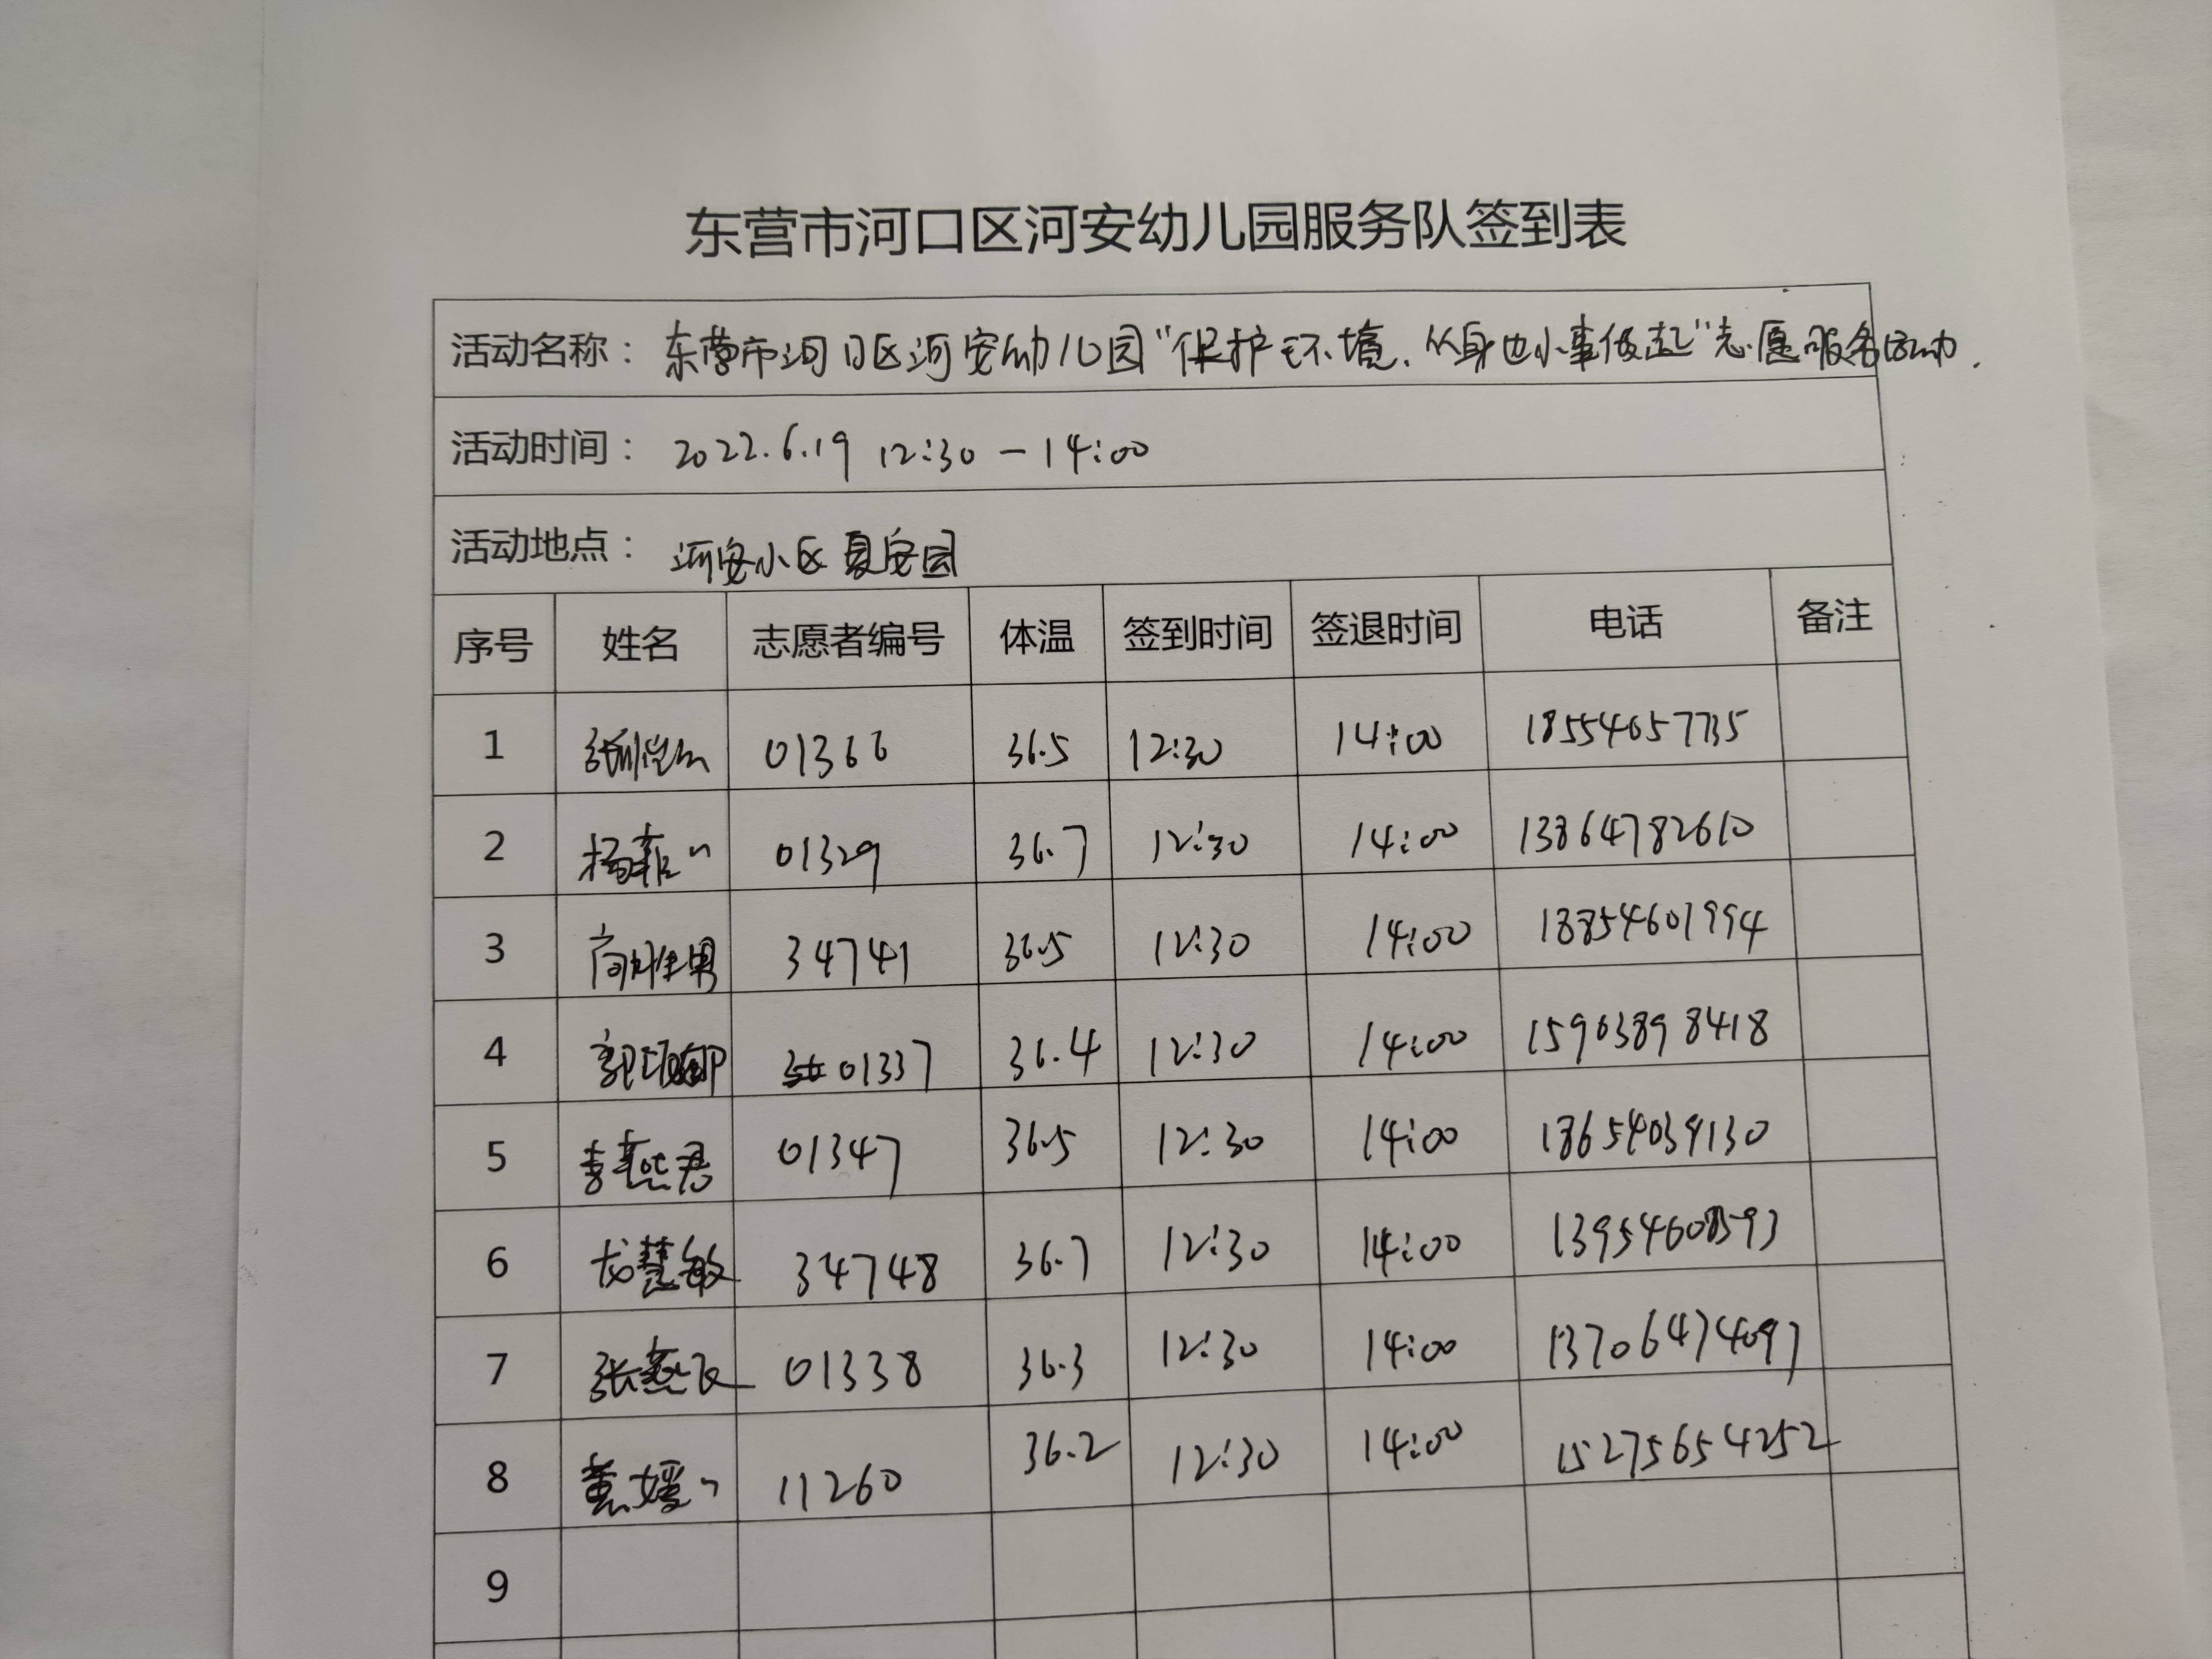 东营市河口区河安幼儿园服务队签到表
活动名称：东营市河口区河安幼儿园“保护环境，从身边小事做起”志愿服务活动.
活动时间：2022.6.19 12:30-14:00
活动地点：河安小区夏安园
序号 姓名 志愿者编号 体温 签到时间 签退时间 电话 备注
1 01366 36.5 12:30 14:00 18554657735
2 01329 36.7 12:30 14:00 13864782610
3 34741 36.5 12:30 14:00 18854601994
4 01337 36.4 12:30 14:00 15963898418
5 李燕君 01347 36.5 12:30 14:00 18654039130
6 尤慧敏 34748 36.7 12:30 14:00
7 张燕飞 01338 36.3 12:30 14:00 13706474097
8 11260 36.2 12:30 14:00 15275654252
9